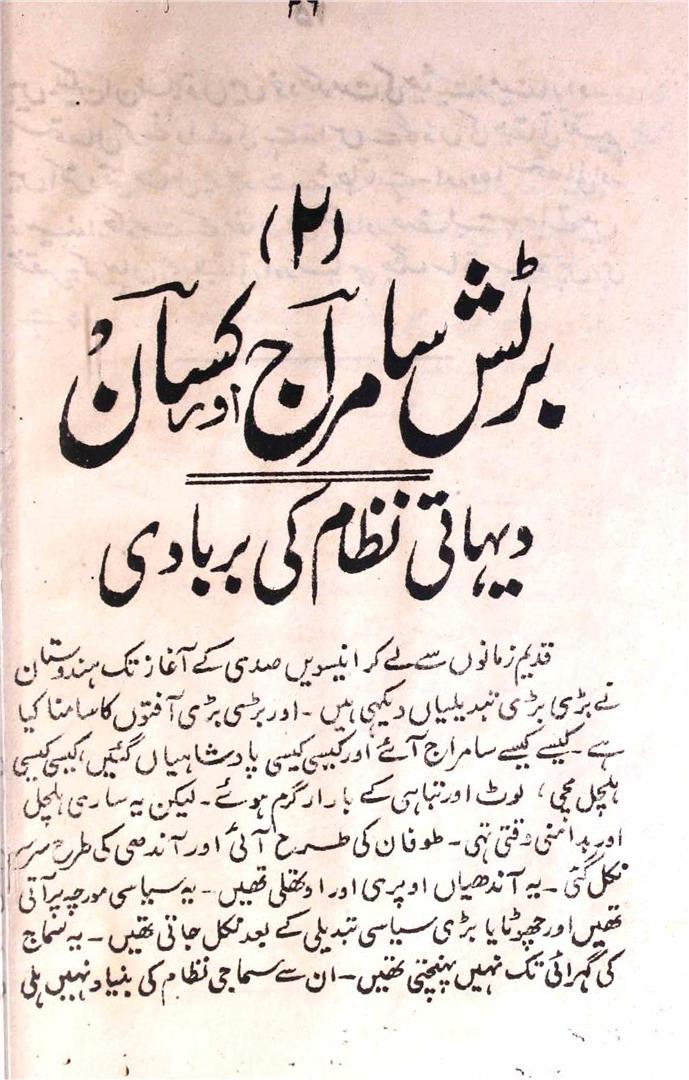 ۳۶
(۲)
برٹش سامراج اور کسان
دیہاتی نظام کی بربادی
قدیم زمانوں سے لے کر انیسویں صدی کے آغاز تک ہندوستان
نے بڑی بڑی تبدیلیاں دیکھی ہیں ۔ اور بڑی بڑی آفتوں کا سامنا کیا
ہے ۔ کیسے کیسے سامراج آئے اور کیسی کیسی پادشاہیاں گئیں، کیسی کیسی
ہلچل مچی، لوٹ اور تباہی کے بازار گرم ہوئے ۔ لیکن یہ ساری ہلچل
اور بدامنی وقتی تہی ۔ طوفان کی طرح آئی اور آندھی کی طرح سر سے
نکل گئی ۔ یہ آندھیاں اوپری اور اوتھلی تھیں ۔ یہ سیاسی مورچہ پر آتی
تھیں اور چھوٹا یا بڑی سیاسی تبدیلی کے بعد نکل جاتی تھیں ۔ یہ سماج
کی گہرائی تک نہیں پہنچتی تھیں ۔ ان سے سماجی نظام کی بنیاد نہیں ہلی